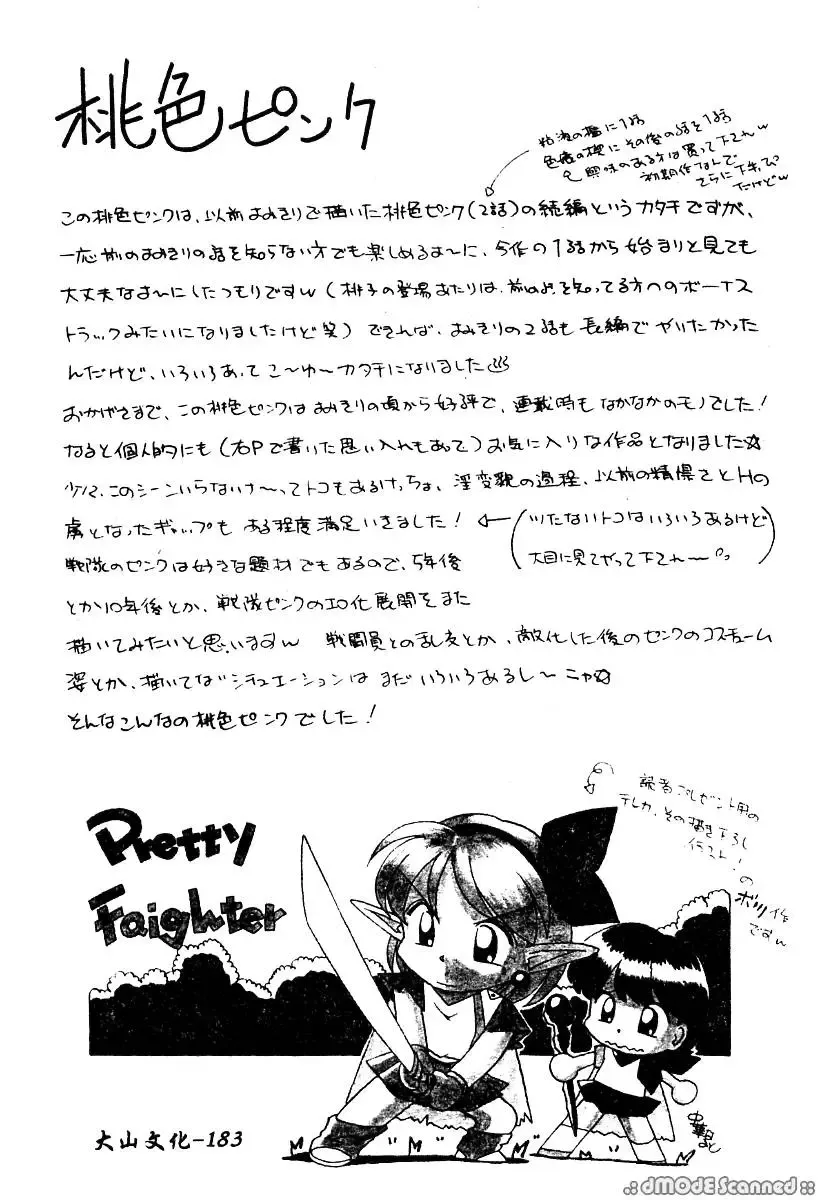 桃色ピンク
粘液の檻に1話
色魔の楔にその後の話を1話
興味のある方は買って下されw
初期作なんで
さらに下手っぴ
だけどw
この桃色ピンクは、以前よみきりで描いた桃色ピンク(2話)の続編というカタチですが、
一応前のよみきりの話を知らない方でも楽しめるよ〜に、今作の1話から始まりと見ても
大丈夫なよ〜にしたつもりですw(桃子の登場あたりは、前のを知ってる方へのボーナス
トラックみたいになりましたけど笑)できれば、よみきりの2話も長編でやりたかった
んだけど、いろいろあってこ〜ゆ〜カタチになりました
おかげさまで、この桃色ピンクはよみきりの頃から好評で、連載時もなかなかのモノでした!
なると個人的にも(右Pで書いた思い入れもあって)お気に入りな作品となりました☆
少々、このシーンいらないな〜ってトコもあるけっちょ、淫変貌の過程、以前の精悍さとHの
虜となったギャップもある程度満足いきました!
ツたないトコはいろいろあるけど
大目に見てやって下され〜
戦隊のピンクは好きな題材でもあるので、5年後
とか10年後とか、戦隊ピンクのエロ化展開をまた
描いてみたいと思いますw 戦闘員との乱交とか、敵化した後のピンクのコスチューム
姿とか、描いてないシチュエーションはまだいろいろあるし〜ニャ☆
そんなこんなの桃色ピンクでした!
読者プレゼント用の
テレカ、その描き下ろし
イラスト!
の
ボツ作
ですw
Pretty
Faighter
大山文化-183
dMODE Scanned